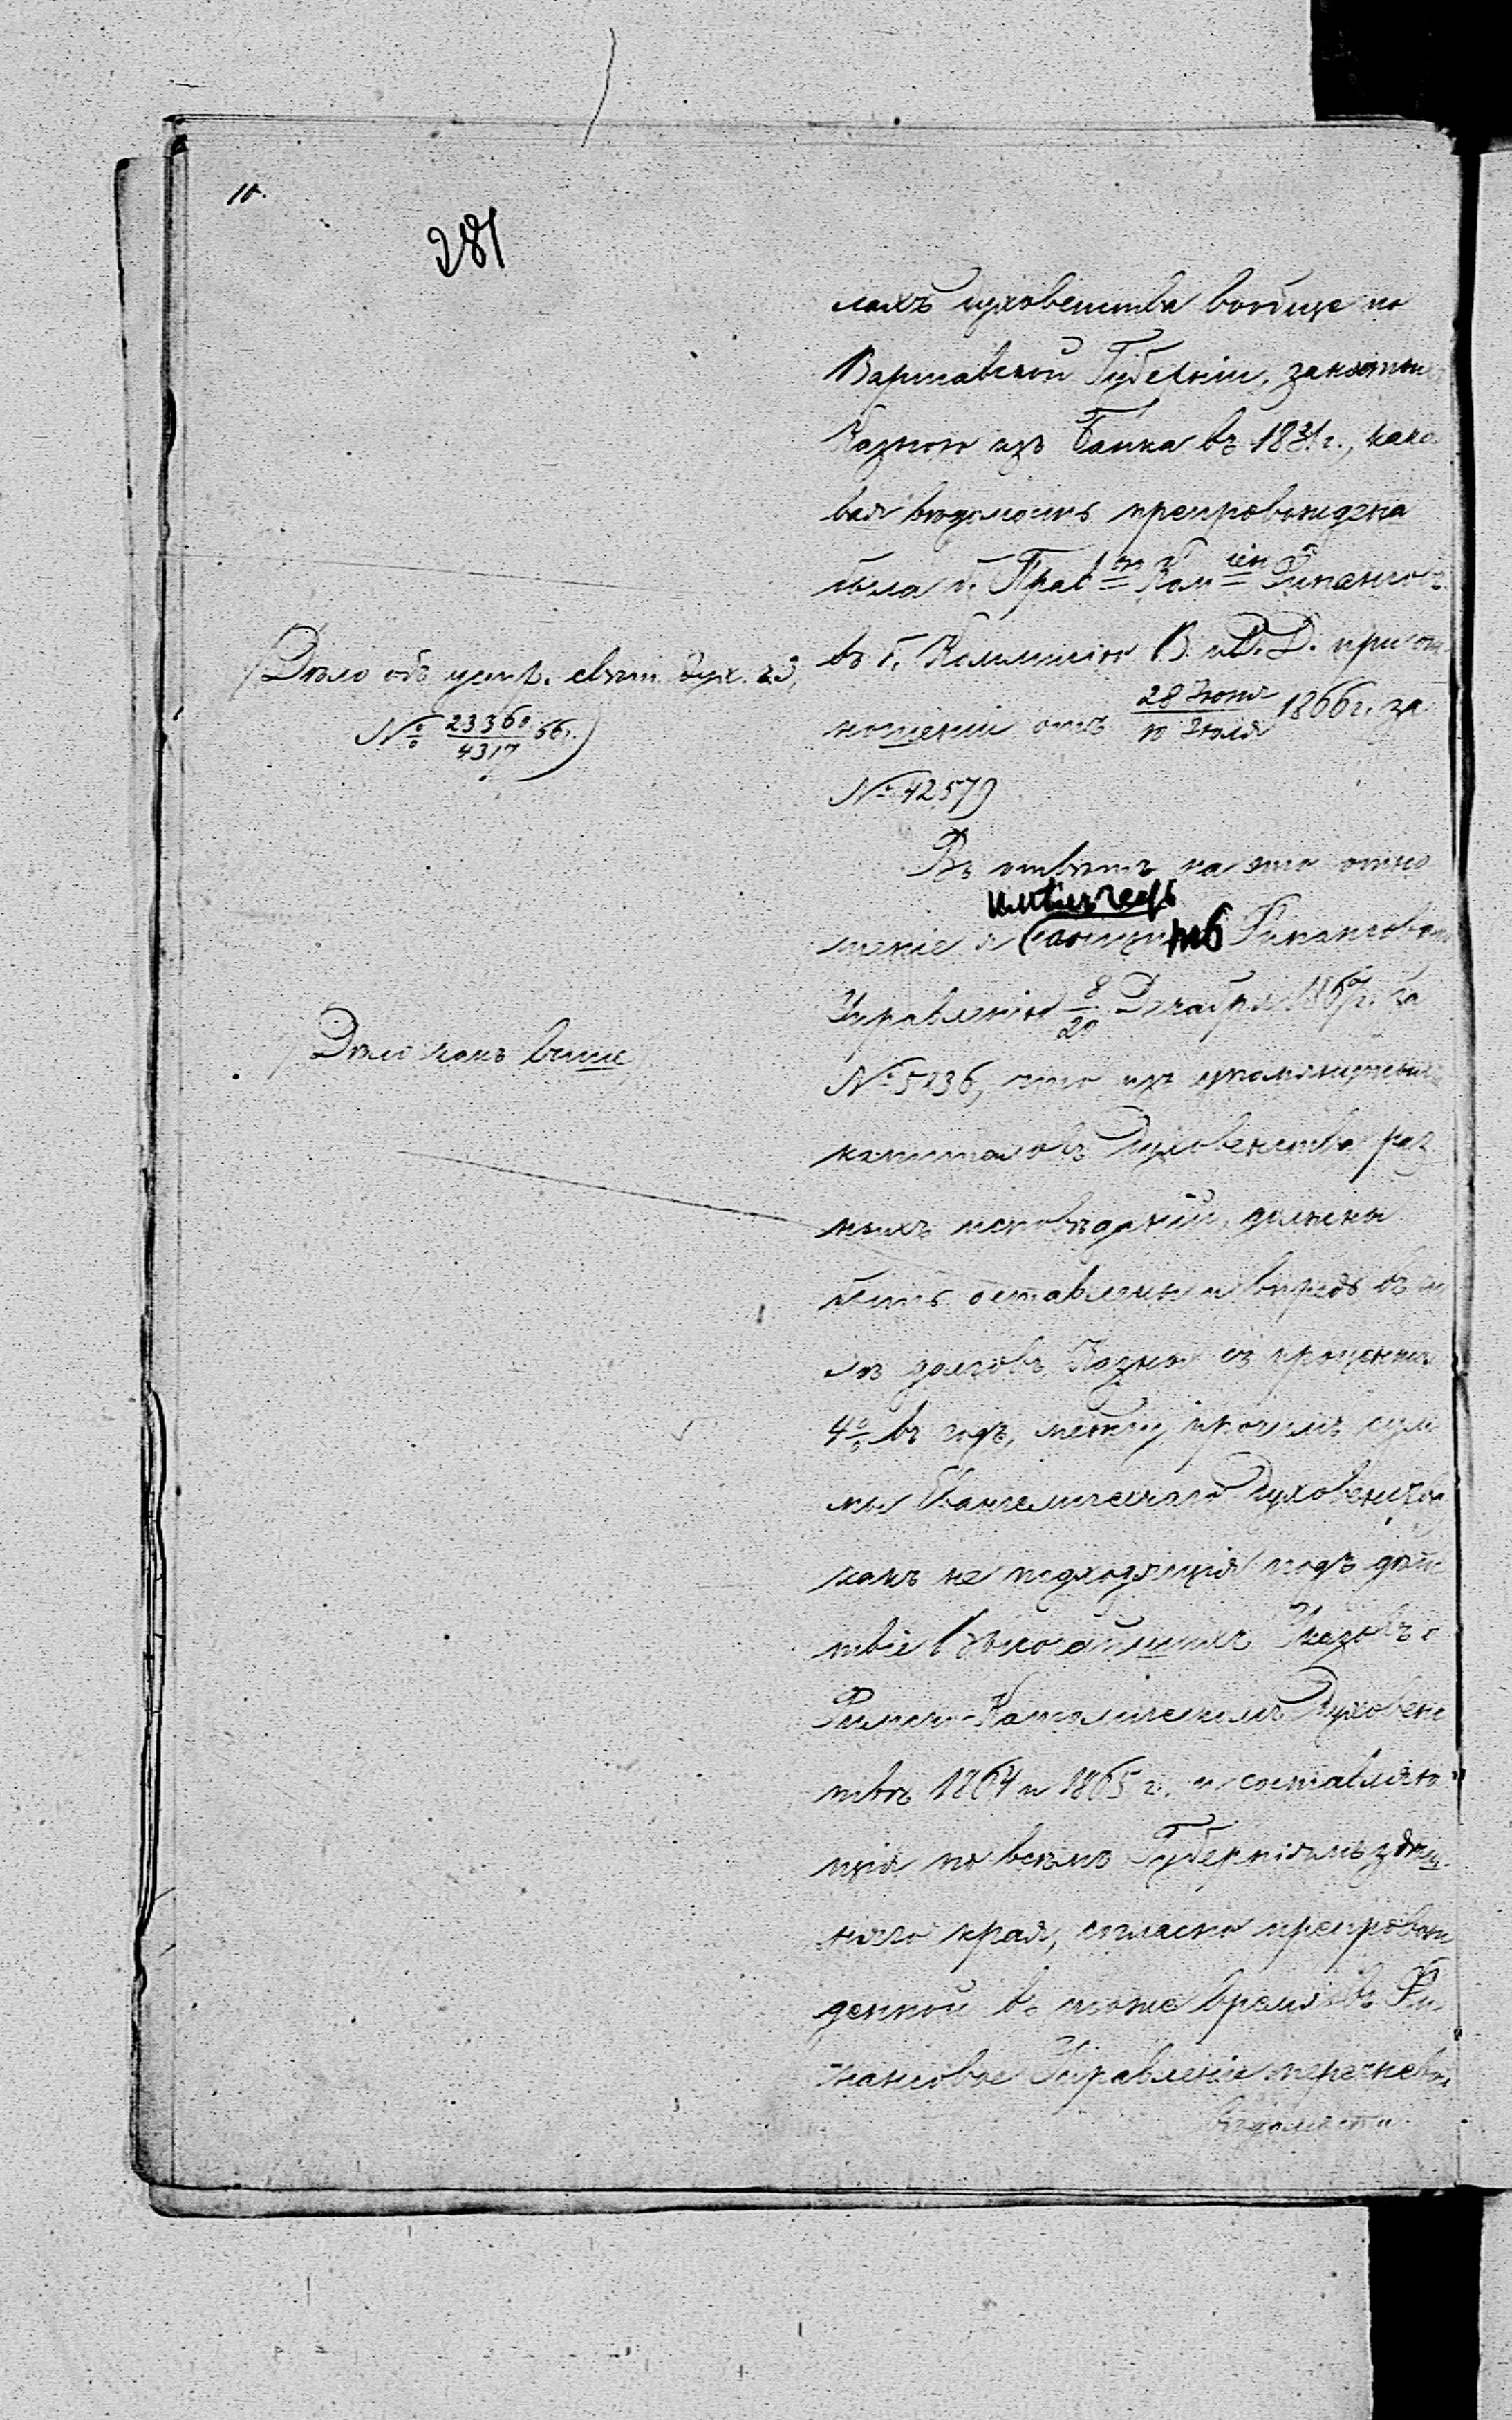 10.
281
лахъ духовенства вообще по
Варшавской Губерніи, занятых
Казною изъ Банка въ 1831 г., како
вая вѣдомость препровождена
была б. Прав=ою Ком=іею Финансовъ
въ б. Коммисію В. и Д. Д. при от
ношеніи отъ 28 Іюня / 10 Іюля 1866 г. за
№ 42579
(Дѣло объ устр. свѣт. дух. 
№ 23360/4317 66 г.)
Въ отвѣтъ на это отно
шеніе я Финансовому
Управленію 8/20 Декабря 1867 г. за
№ 5236, что изъ упомянутыхъ
(Дѣло какъ выше)
капиталовъ Духовенства раз
ныхъ исповѣданій, должны
быть оставлены и впредь въ чи
слѣ долговъ Казны съ процентомъ
4% въ годъ, между прочимъ сум
мы Евангелическаго Духовенства
какъ не подходящія подъ дѣйс
твіе Высочайшихъ Указовъ о
Римско-Католическомъ Духовенс
твѣ 1864 и 1865 г. и составляю
щія по всѣмъ Губерніямъ здѣш
няго края, согласно препровож
денной въ тоже время въ Фи
нансовое Управленіе перечневой
вѣдомости